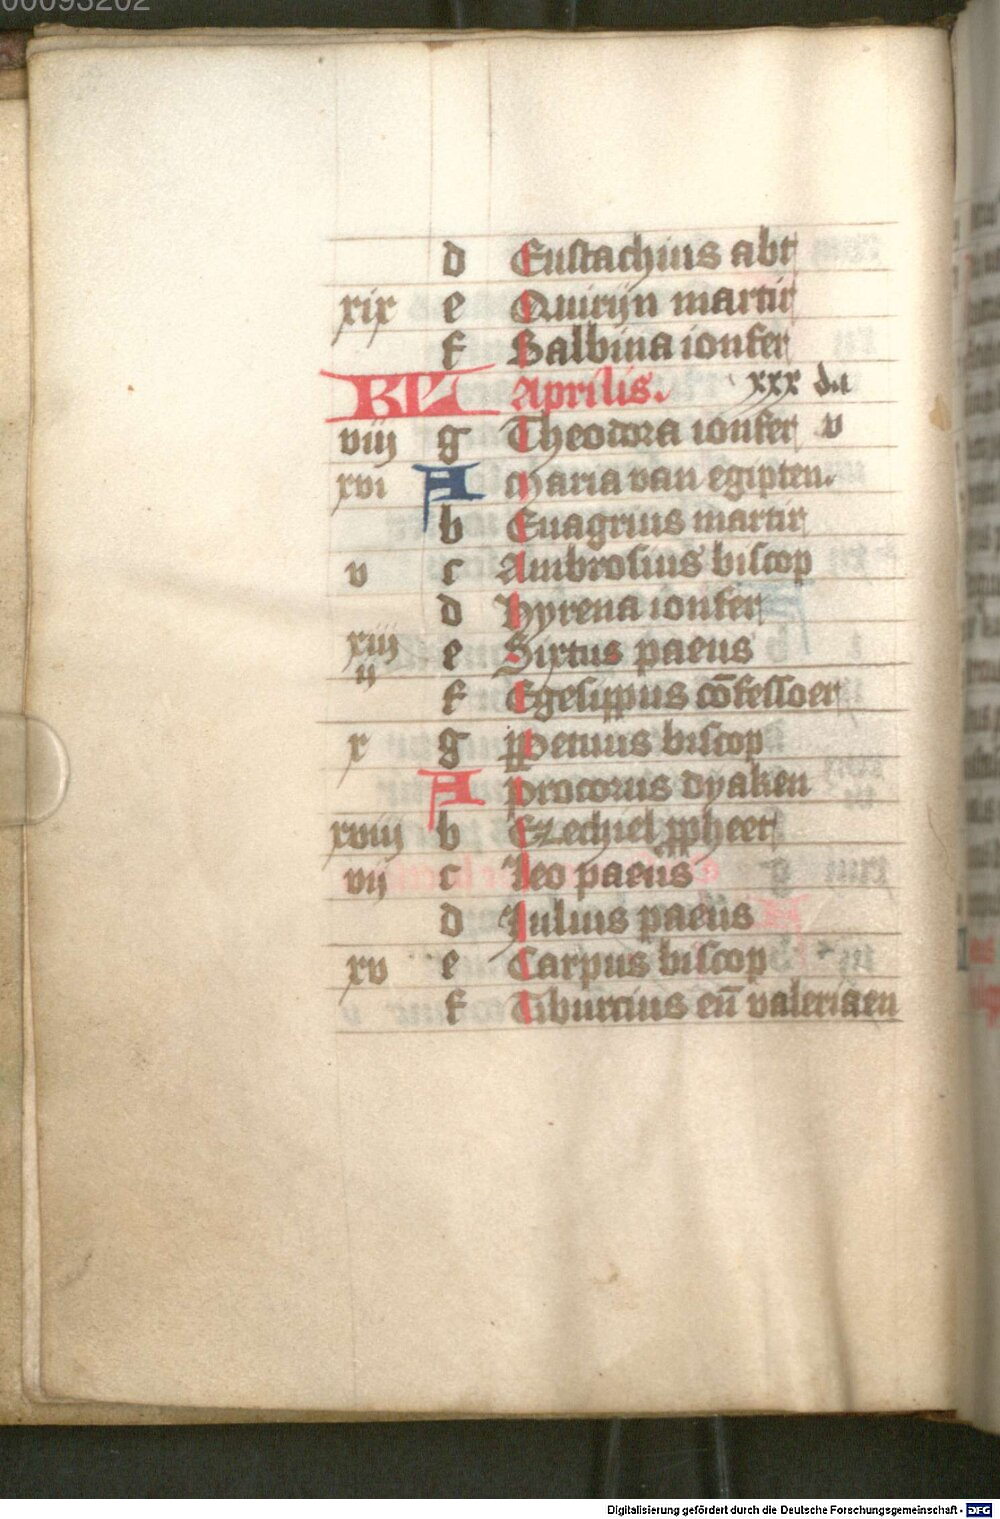 00093202
d Eustachius abt
xix e Quirijn martir
f Balbina ionfer
KL Aprilis. xxx da
viij g Theodora ionfer v
xvi A Maria van egipten.
b Euagrius martir
v c Ambrosius biscop
d Hyrena ionfer
xiij e Sixtus paeus
ij f Egesippus cōfessoer
x g Petuus biscop
A Procorus dyaken
xviij b Ezechiel ppheet
vij c Leo paeus
d Julius paeus
xv e Carpus biscop
f Tiburcius eñ valeriaen
Digitalisierung gefördert durch die Deutsche Forschungsgemeinschaft - DFG